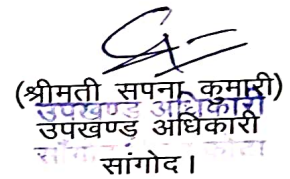 (श्रीमती सपना कुमारी)
उपखण्ड अधिकारी
उपखण्ड़ अधिकारी
सांगोद।